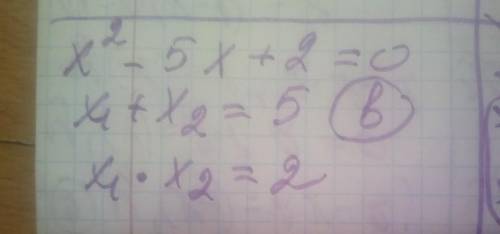 x² - 5x + 2 = 0
x₁ + x₂ = 5 в
x₁ · x₂ = 2